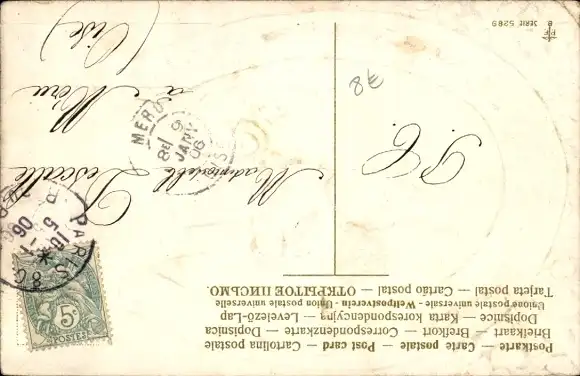 Postkarte — Carte postale — Post card — Cartolina postale
Briefkaart — Brefkort — Correspondenzkarte — Dopisnica
Dopisnice — Karta korespondencyjna — Levelező-Lap
Unione postale universale - Weltpostverein - Union postale universelle
Tarjeta postal — Cartão postal — ОТКРЫТОЕ ПИСЬМО.
PARIS
5
POSTES
Mademoiselle
MERU
9
JANV
06
à
(Oise)
8€
SERIE 5289